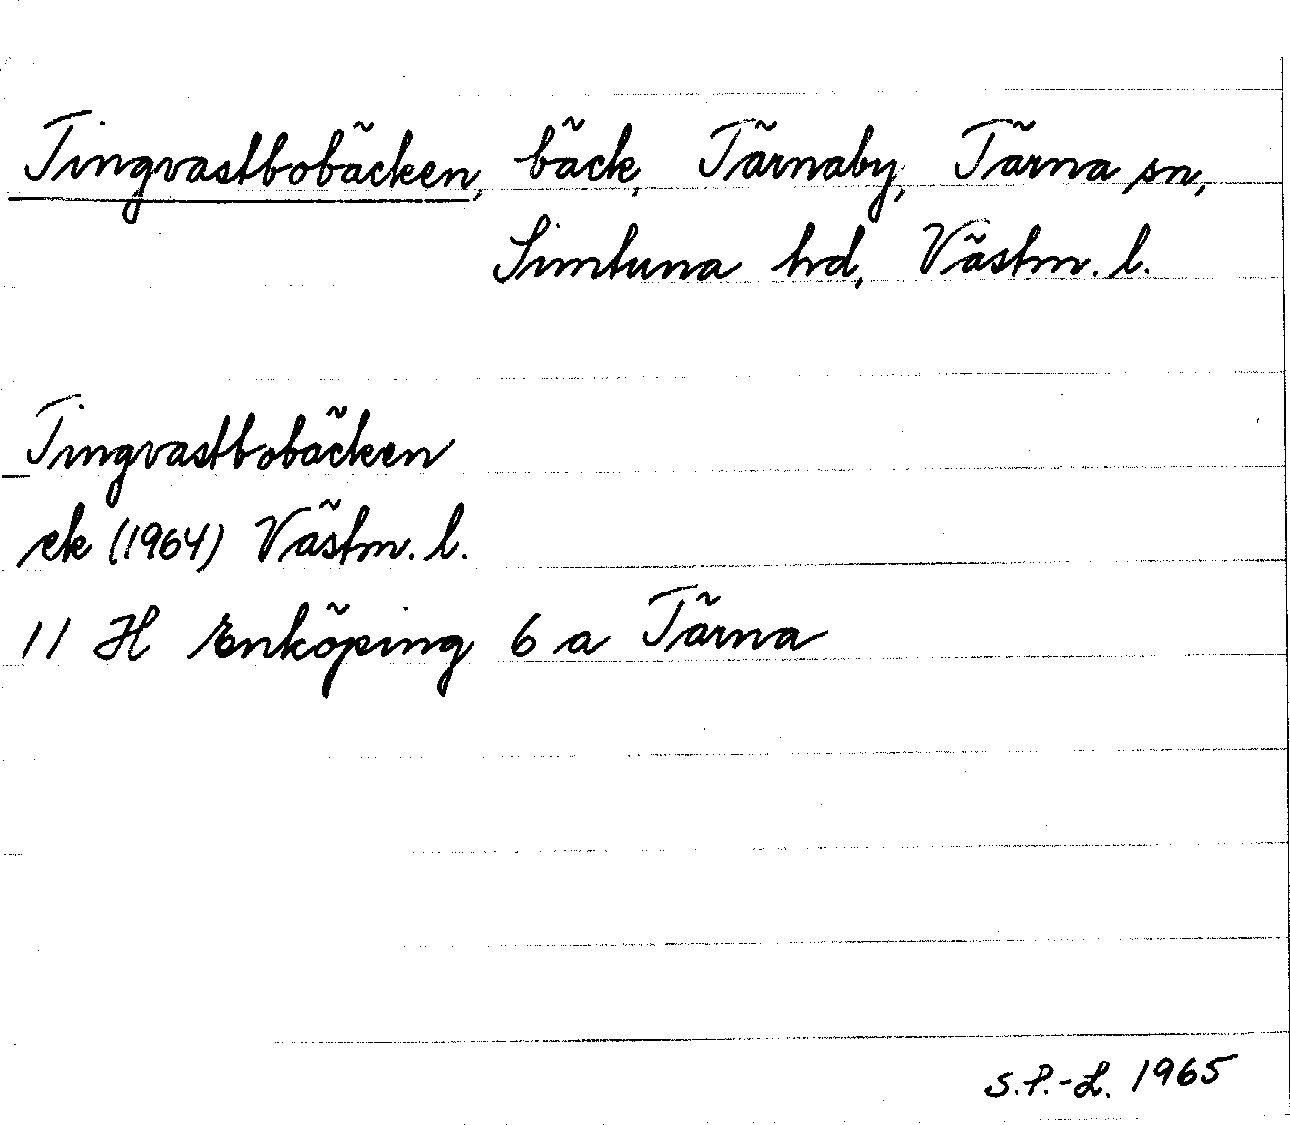 Tingvastbobäcken, bäck, Tärnaby, Tärna sn,
Simtuna hd, Västm. l.
Tingvastbobäcken
ek (1964) Västm. l.
11 H Enköping 6 a Tärna
S.P.-L. 1965